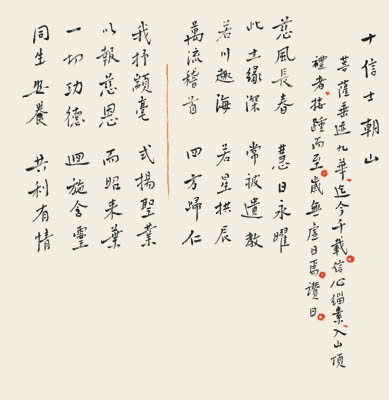 十信士朝山
菩薩垂迹九華迄今千載信心緇素入山頂
禮者接踵而至歲無虛日焉讚曰
慈風長春　慧日永曜
此土緣深　常被遺教
若川趣海　若星拱辰
萬流稽首　四方歸仁
我抒穎毫　式揚聖業
以報慈恩　而昭來葉
一切功德　迴施含靈
同生安養　共利有情